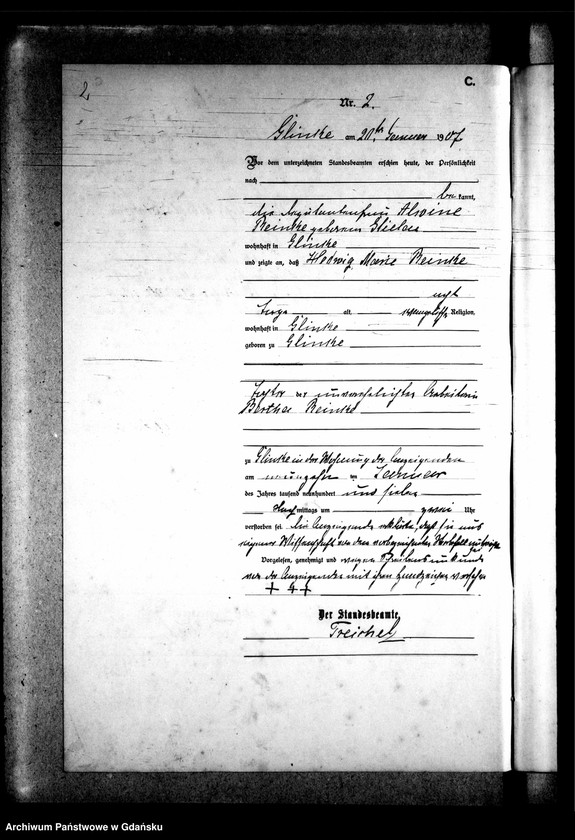 2
C.
Nr. 2.
Glinke am 20ten Januar 1907
Vor dem unterzeichneten Standesbeamten erschien heute, der Persönlichkeit
nach
be kannt,
die Alwine
Reinke geborene
wohnhaft in Glinke
und zeigte an, daß Hedwig Marie Reinke
acht
Tage alt, evangelischer Religion,
wohnhaft in Glinke
geboren zu Glinke
Tochter der unverehelichten Arbeiterin
Bertha Reinke
zu Glinke in der Wohnung der Anzeigenden
am neunzehn ten Januar
des Jahres tausend neunhundert und sieben
Nach mittags um zwei Uhr
verstorben sei. Die Anzeigende erklärte, daß sie aus
eigener Wissenschaft von dem vorbezeichneten Sterbefall
Vorgelesen, genehmigt und wegen Schreibensunkunde
von der Anzeigenden mit ihrem Handzeichen versehen
+++
Der Standesbeamte.
Treichel
Archiwum Państwowe w Gdańsku